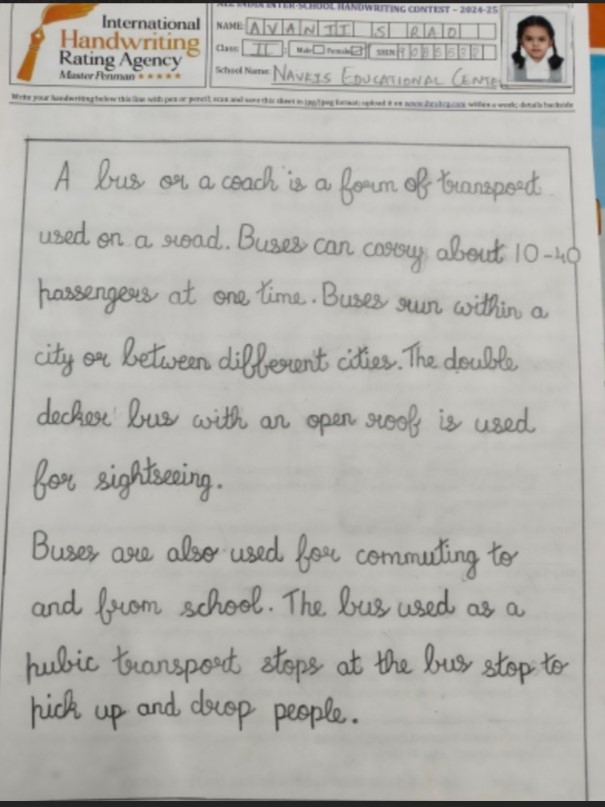 International
Handwriting
Rating Agency
Master Penman
INTER-SCHOOL HANDWRITING CONTEST - 2024-25
NAME: AVANII S RAO
Class: II Male Female
School Name: NAVKIS EDUCATIONAL
Write your handwriting below this line with pen or pencil, scan and save this sheet in jpg/jpeg format; upload it on within a week; details backside
A bus or a coach is a form of transport
used on a road. Buses can carry about 10-40
passengers at one time. Buses run within a
city or between different cities. The double
decker bus with an open roof is used
for sightseeing.
Buses are also used for commuting to
and from school. The bus used as a
pubic transport stops at the bus stop to
pick up and drop people.